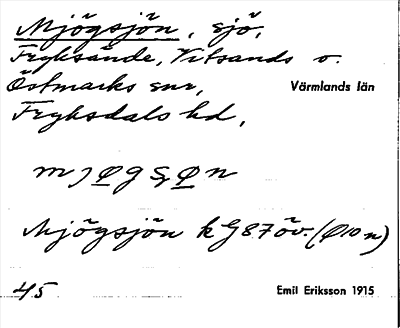 Mjögsjön, sjö,
Fryksände, Vitsands o.
Östmarks snr,
Värmlands län
Fryksdals hd,
Mjögsjön kG87öv. (Ø10n)
45
Emil Eriksson 1915